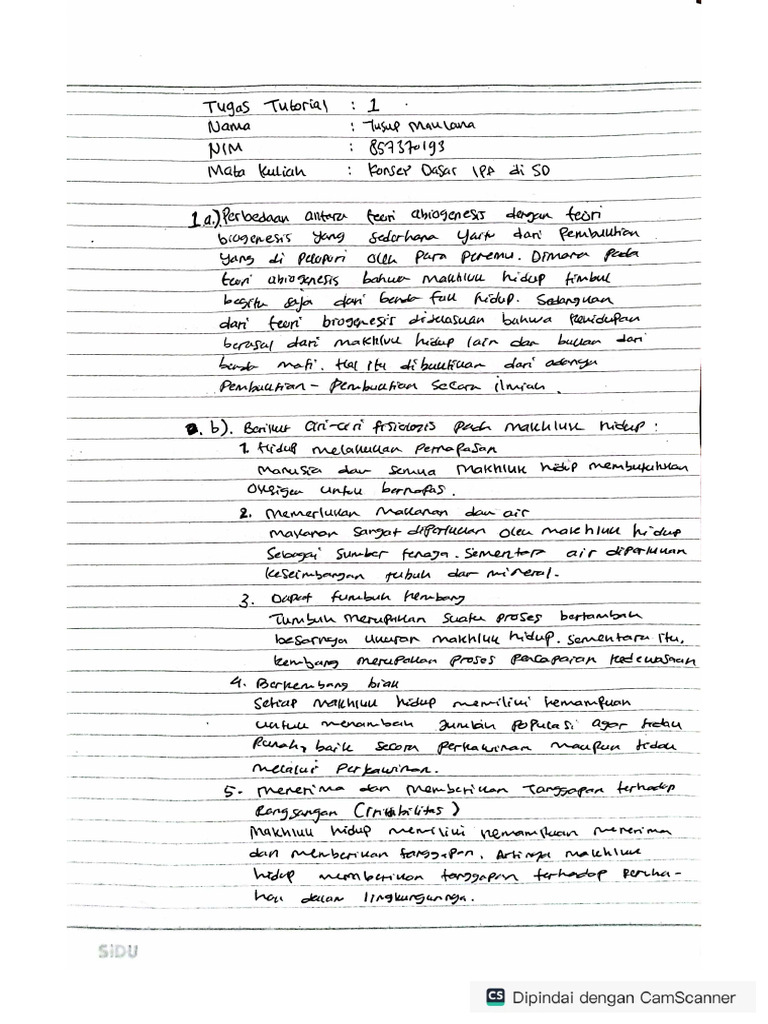 Tugas Tutorial : 1
Nama : Yusup Maulana
NIM : 857370193
Mata Kuliah : Konsep Dasar IPA di SD
1 a.) Perbedaan antara teori abiogenesis dengan teori
biogenesis yang sederhana yaitu dari Pembuktian
yang di Pelopori oleh Para Penemu. Dimana Pada
teori abiogenesis bahwa makhluk hidup timbul
begitu saja dari benda tak hidup. Sedangkan
dari teori biogenesis dijelaskan bahwa kehidupan
berasal dari makhluk hidup lain dan bukan dari
benda mati. Hal itu dibuktikan dari adanya
Pembuktian - Pembuktian secara ilmiah.
b). Berikut Ciri-Ciri fisiologis pada makhluk hidup :
1. Hidup melakukan Pernapasan
Manusia dan semua makhluk hidup membutuhkan
Oksigen untuk bernafas.
2. Memerlukan makanan dan air
makanan sangat diperlukan oleh makhluk hidup
Sebagai sumber tenaga. Sementara air diperlukan
keseimbangan tubuh dan mineral.
3. Dapat tumbuh kembang
Tumbuh merupakan suatu proses bertambah
besarnya ukuran makhluk hidup. sementara itu,
kembang merupakan proses pencapaian kedewasaan
4. Berkembang biak
Setiap makhluk hidup memiliki kemampuan
untuk menambah Jumlah populasi agar tidak
Punah, baik secara perkawinan maupun tidak
melalui perkawinan.
5. Menerima dan memberikan Tanggapan terhadap
Rangsangan (Iritabilitas)
Makhluk hidup memiliki kemampuan menerima
dan memberikan tanggapan. Artinya makhluk
hidup memberikan tanggapan terhadap Peruba-
han dalam lingkungannya.
SiDU
CS Dipindai dengan CamScanner